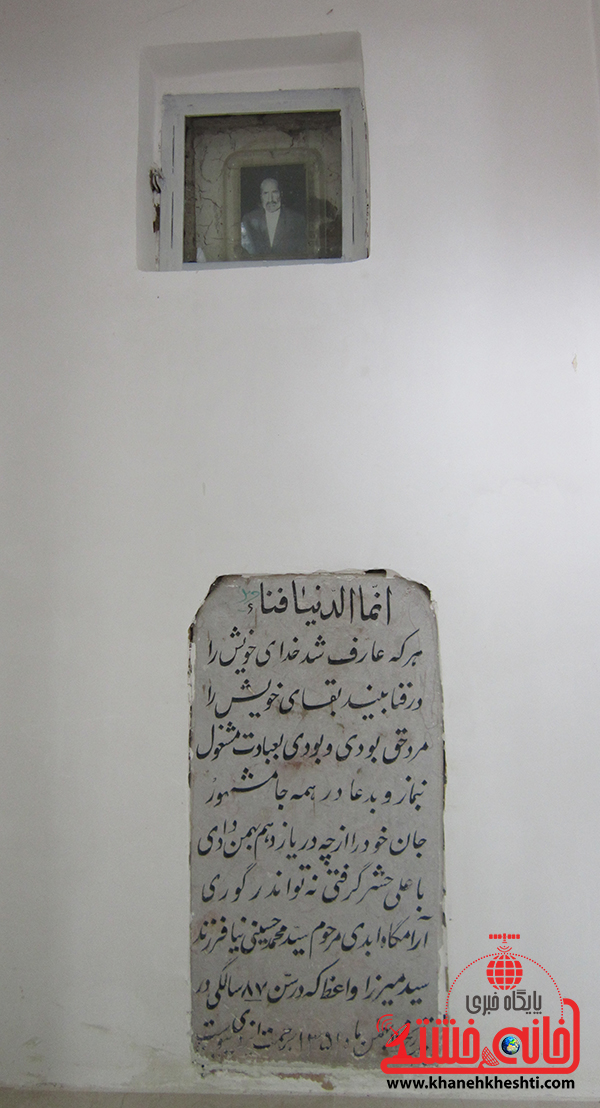 انّما الدنیا فناء
هر که عارف شد خدای خویش را
در فنا بیند بقای خویش را
مرد حق بودی و بودی بعبادت مشغول
بنماز و بدعا در همه جا مشهور
جان خود را از چه در یازدهم بهمن دادی
با علی حشر گرفتی نه تو اندر گوری
آرامگاه ابدی مرحوم سید محمد حسینی نیا فرزند
سید میرزا واعظ که در سن ۸۷ سالگی در
بهمن ماه ۱۳۵۱ برحمت ایزدی
پایگاه خبری
خانه خشتی
www.khanehkheshti.com